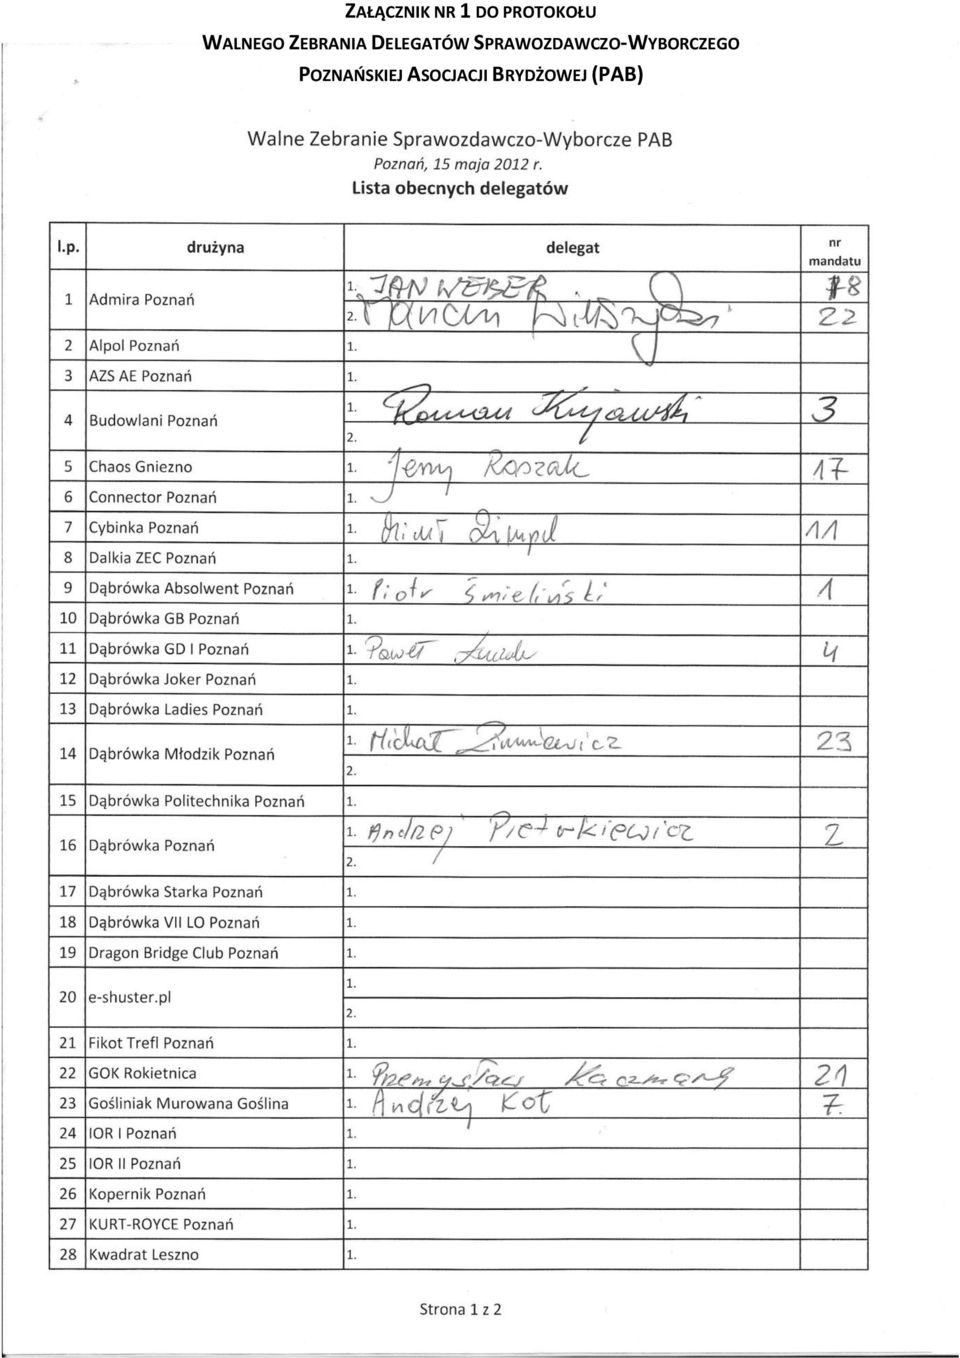 ZAŁĄCZNIK NR 1 DO PROTOKOŁU
WALNEGO ZEBRANIA DELEGATÓW SPRAWOZDAWCZO-WYBORCZEGO
POZNAŃSKIEJ ASOCJACJI BRYDŻOWEJ (PAB)
Walne Zebranie Sprawozdawczo-Wyborcze PAB
Poznań, 15 maja 2012 r.
Lista obecnych delegatów
l.p. drużyna delegat nr mandatu
1 Admira Poznań 1. JAN WEBER 8
2. Marcin 22
2 Alpol Poznań 1.
3 AZS AE Poznań 1.
4 Budowlani Poznań 1. Roman Kujawski 3
2.
5 Chaos Gniezno 1. Jerzy Roszak 17
6 Connector Poznań 1.
7 Cybinka Poznań 1. 11
8 Dalkia ZEC Poznań 1.
9 Dąbrówka Absolwent Poznań 1. Piotr Śmieliński 1
10 Dąbrówka GB Poznań 1.
11 Dąbrówka GD I Poznań 1. Paweł 4
12 Dąbrówka Joker Poznań 1.
13 Dąbrówka Ladies Poznań 1.
14 Dąbrówka Młodzik Poznań 1. Michał Zimniewicz 23
2.
15 Dąbrówka Politechnika Poznań 1.
16 Dąbrówka Poznań 1. Andrzej Pietrkiewicz 2
2.
17 Dąbrówka Starka Poznań 1.
18 Dąbrówka VII LO Poznań 1.
19 Dragon Bridge Club Poznań 1.
20 e-shuster.pl 1.
2.
21 Fikot Trefl Poznań 1.
22 GOK Rokietnica 1. Przemysław Kaczmarek 21
23 Gośliniak Murowana Goślina 1. Andrzej Kot 7.
24 IOR I Poznań 1.
25 IOR II Poznań 1.
26 Kopernik Poznań 1.
27 KURT-ROYCE Poznań 1.
28 Kwadrat Leszno 1.
Strona 1 z 2